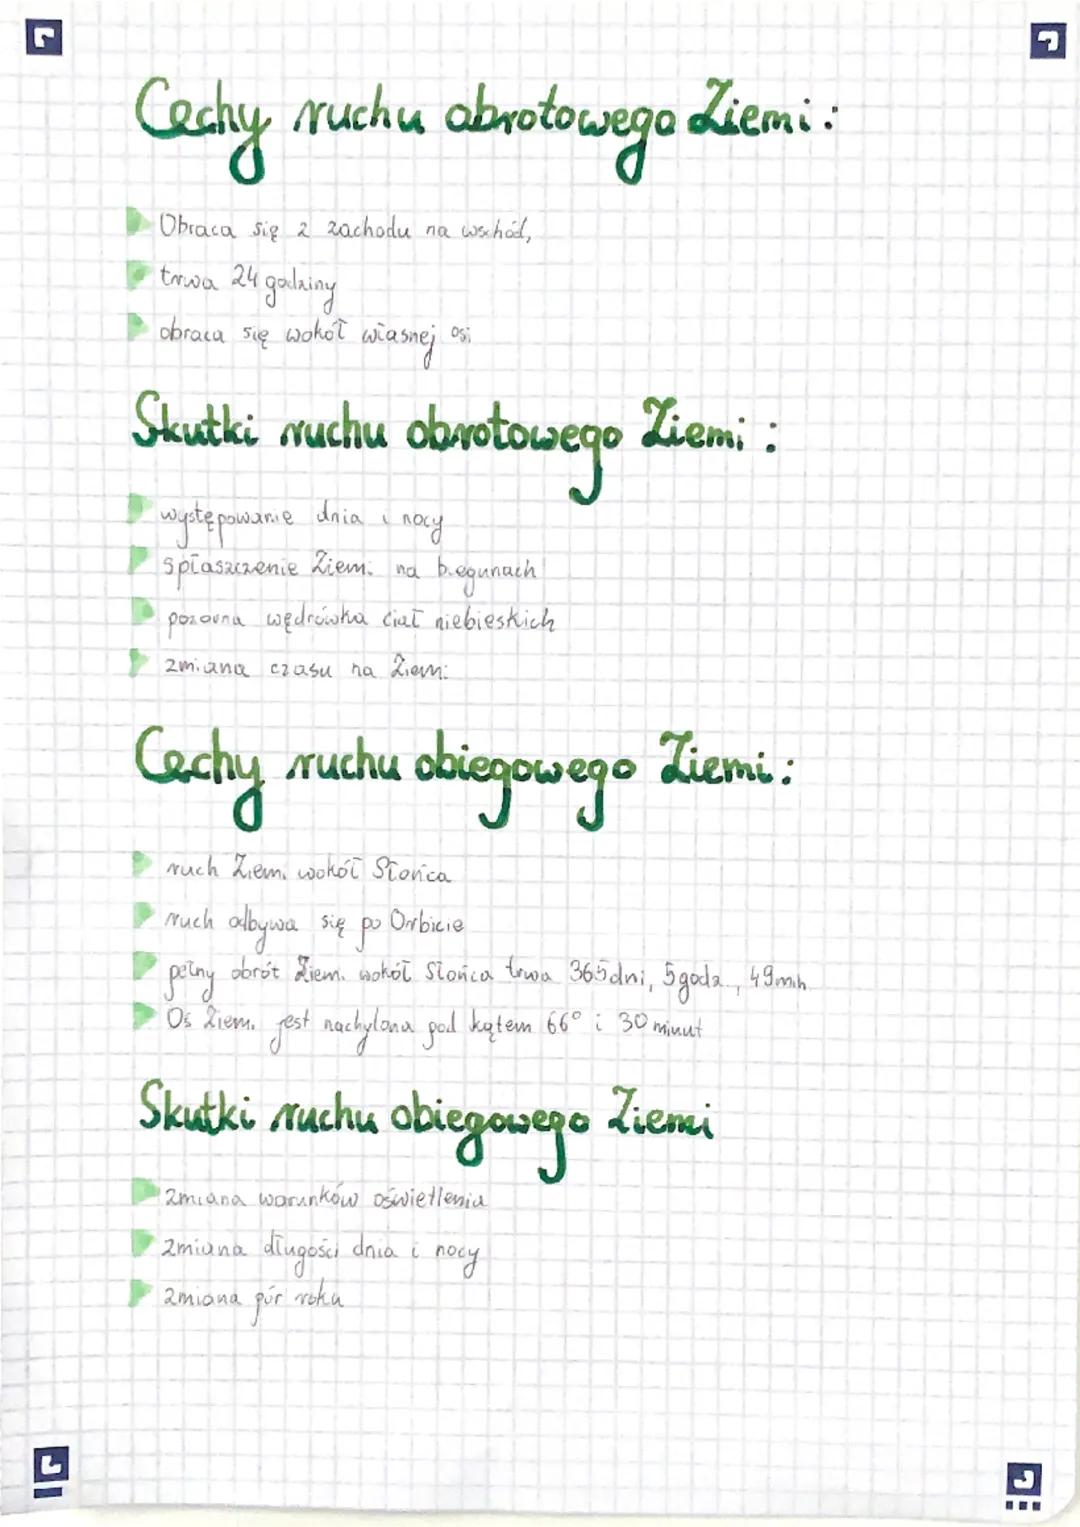 Cechy ruchu obrotowego Ziemi:
Obraca się z zachodu na wschód,
trwa 24 godziny
obraca się wokół własnej osi
Skutki ruchu obrotowego Ziemi:
występowanie dnia i nocy
spłaszczenie Ziemi na biegunach
pozorna wędrówka ciał niebieskich
zmiana czasu na Ziemi
Cechy ruchu obiegowego Ziemi:
ruch Ziemi wokół Słońca
ruch odbywa się po Orbicie
pełny obrót Ziemi wokół Słońca trwa 365dni, 5godz., 49min
Oś Ziemi jest nachylona pod kątem 66° i 30 minut
Skutki ruchu obiegowego Ziemi
zmiana warunków oświetlenia
zmiana długości dnia i nocy
zmiana pór roku